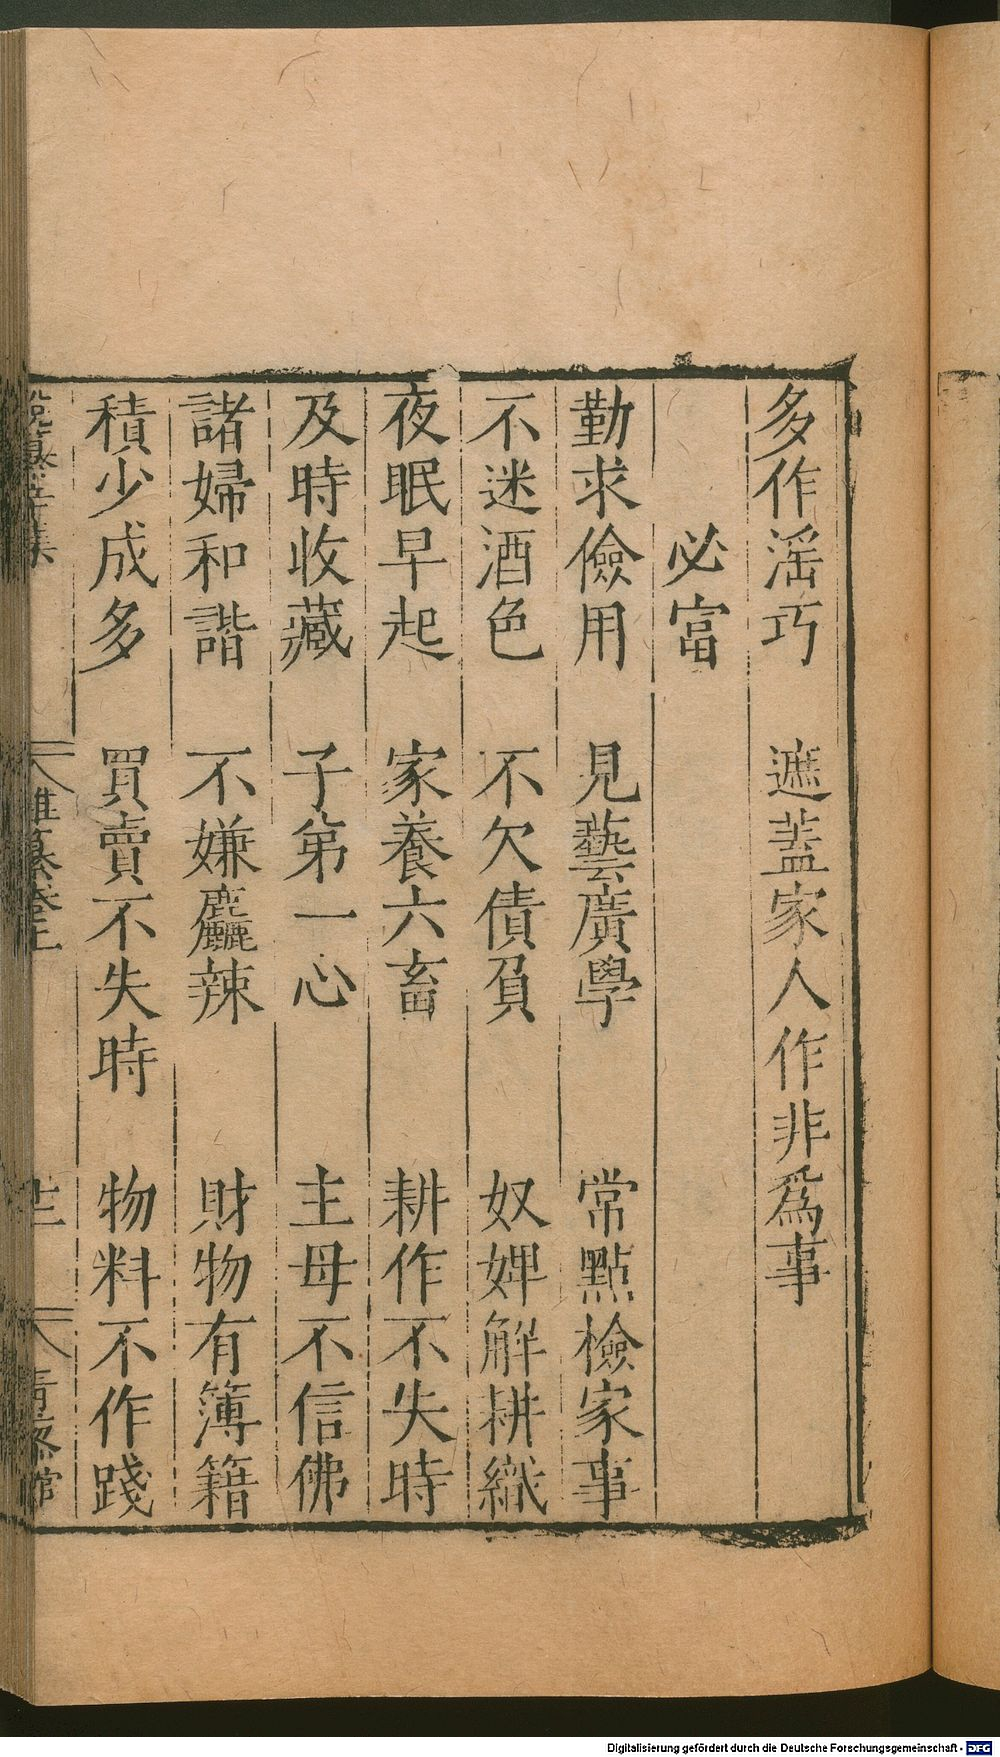 多作滛巧 遮蓋家人作非爲事
必富
勤求儉用 見藝廣學 常點檢家事
不迷酒色 不欠債負 奴婢解耕織
夜眠早起 家養六畜 耕作不失時
及時收藏 子第一心 主母不信佛
諸婦和諧 不嫌麤辣 財物有簿籍
積少成多 買賣不失時 物料不作踐
雜纂卷上
Digitalisierung gefördert durch die Deutsche Forschungsgemeinschaft - DFG